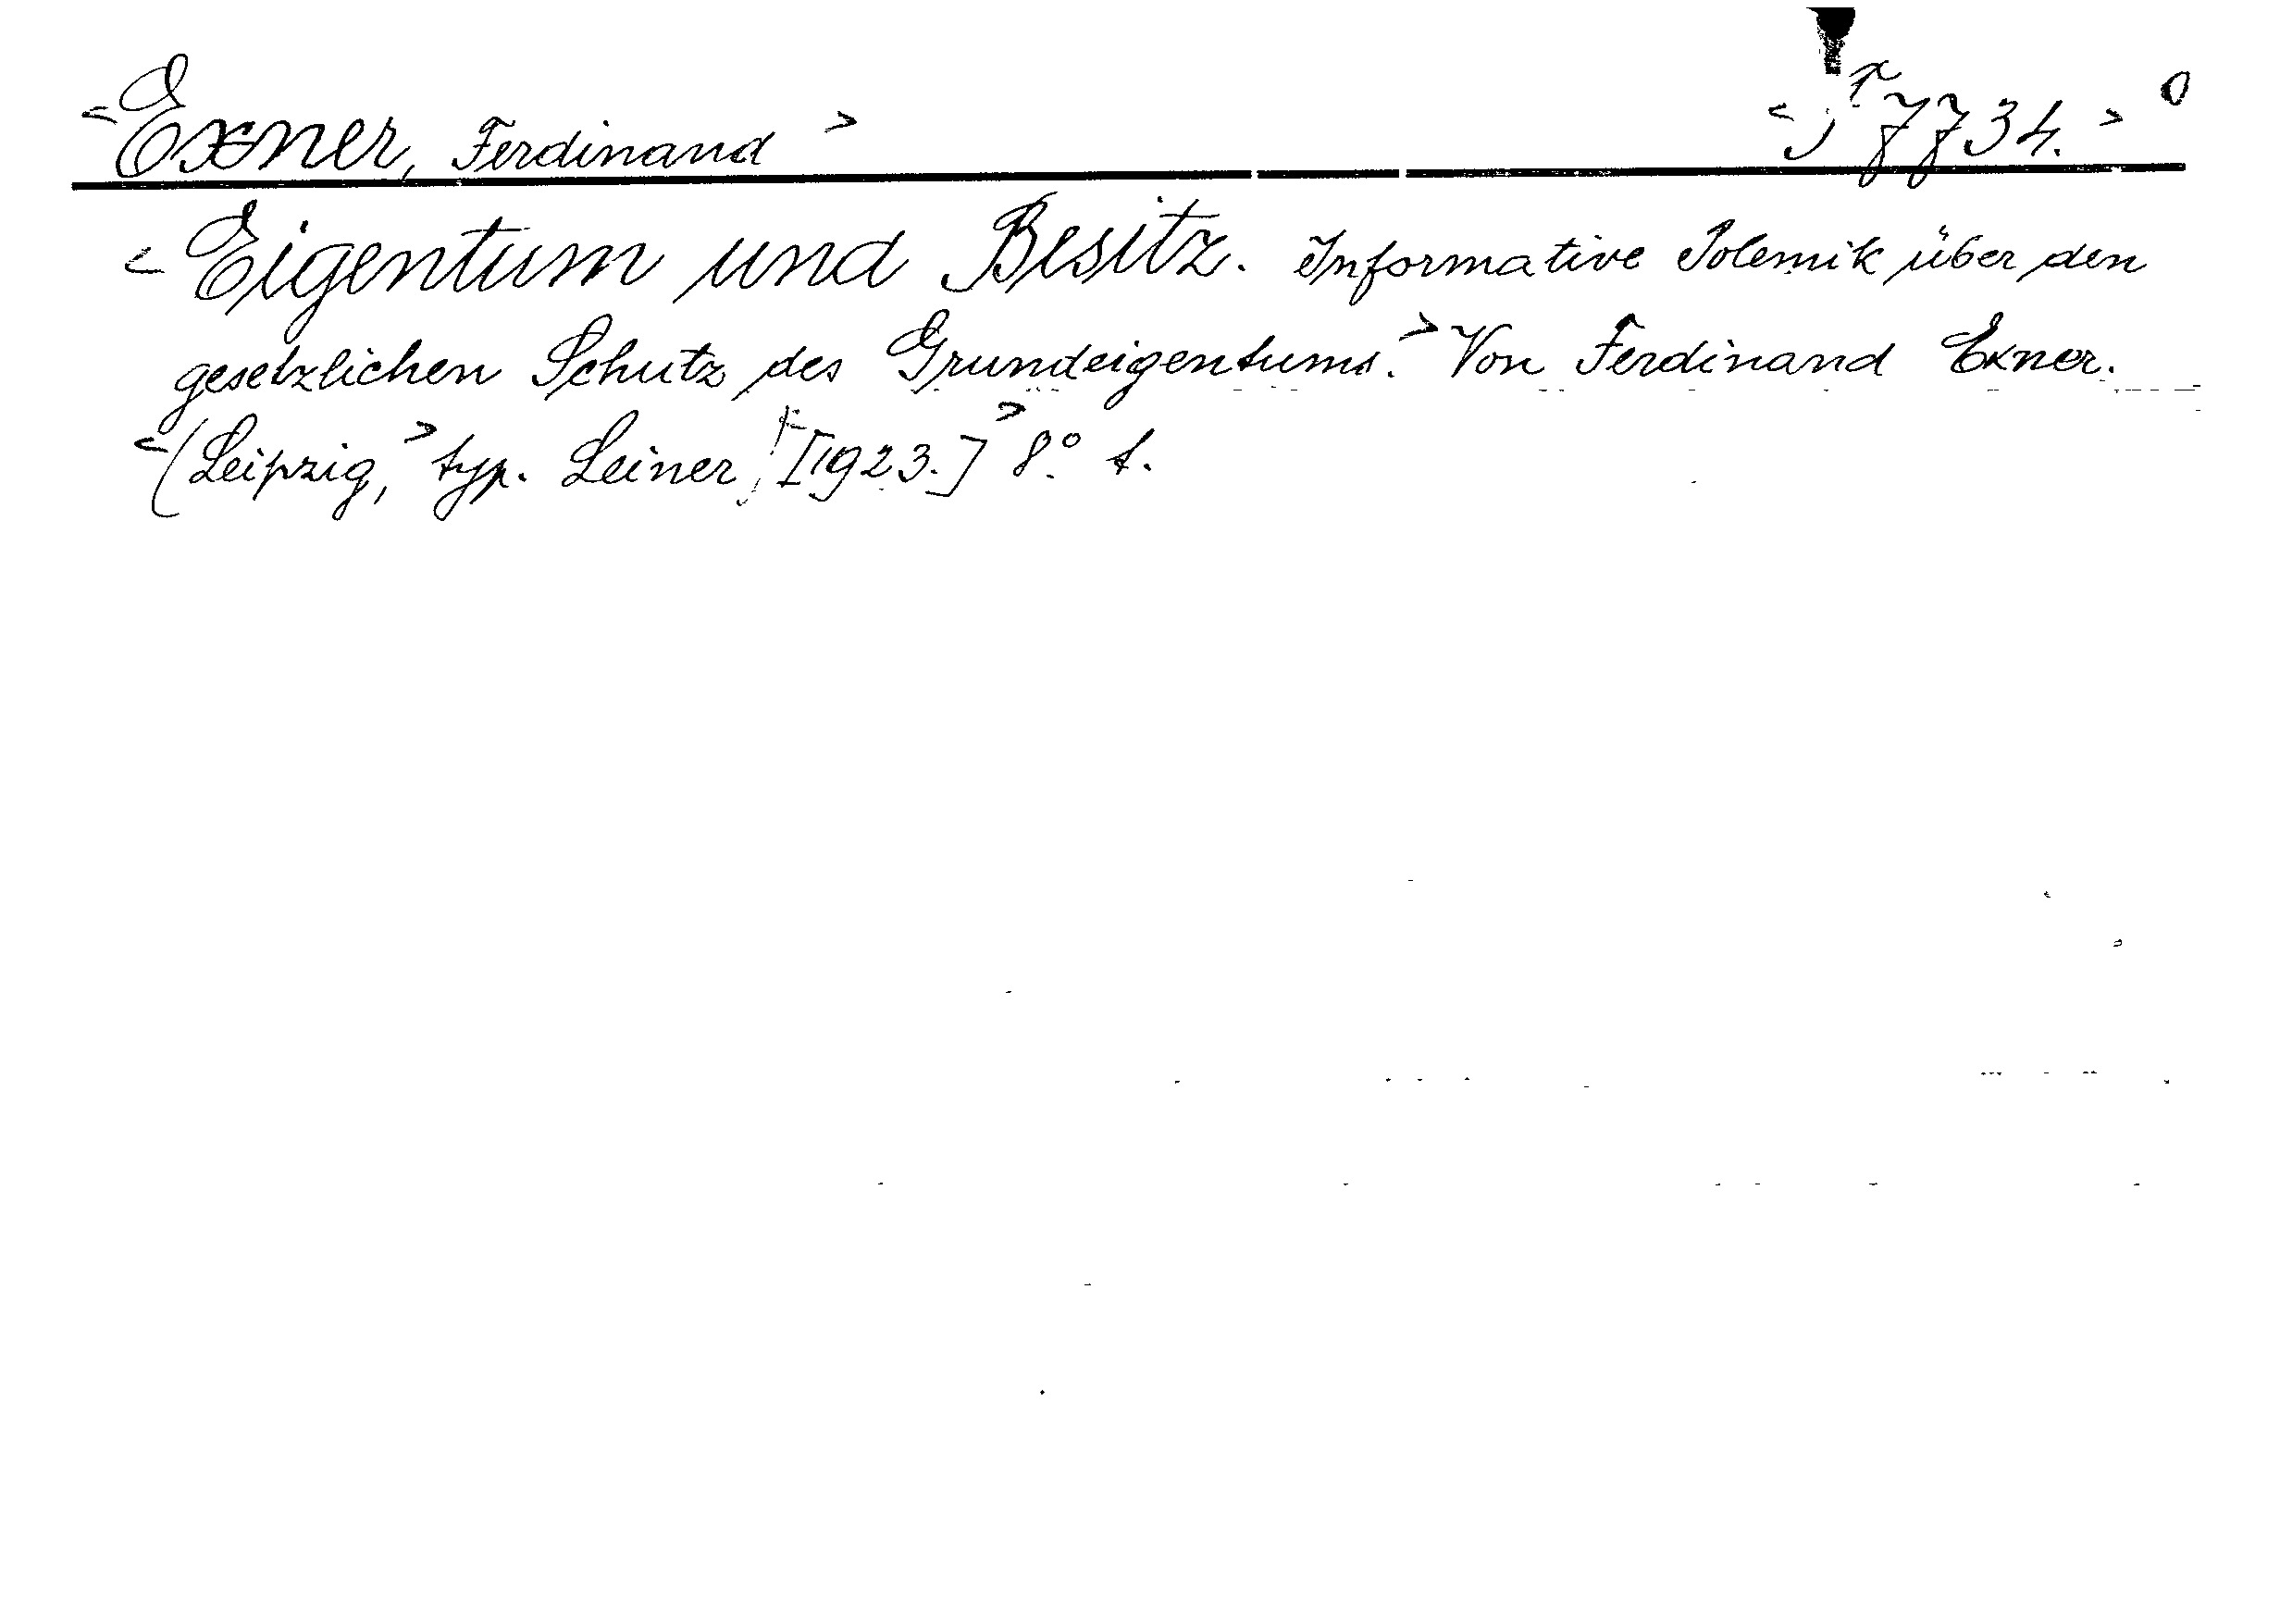 <Exner, Ferdinand> 7734.>
<Eigentum und Besitz. Informative Polemik über den
gesetzlichen Schutz des Grundeigentums.> Von Ferdinand Exner.
<(Leipzig,> typ. Leiner, [1923.]> 8°.